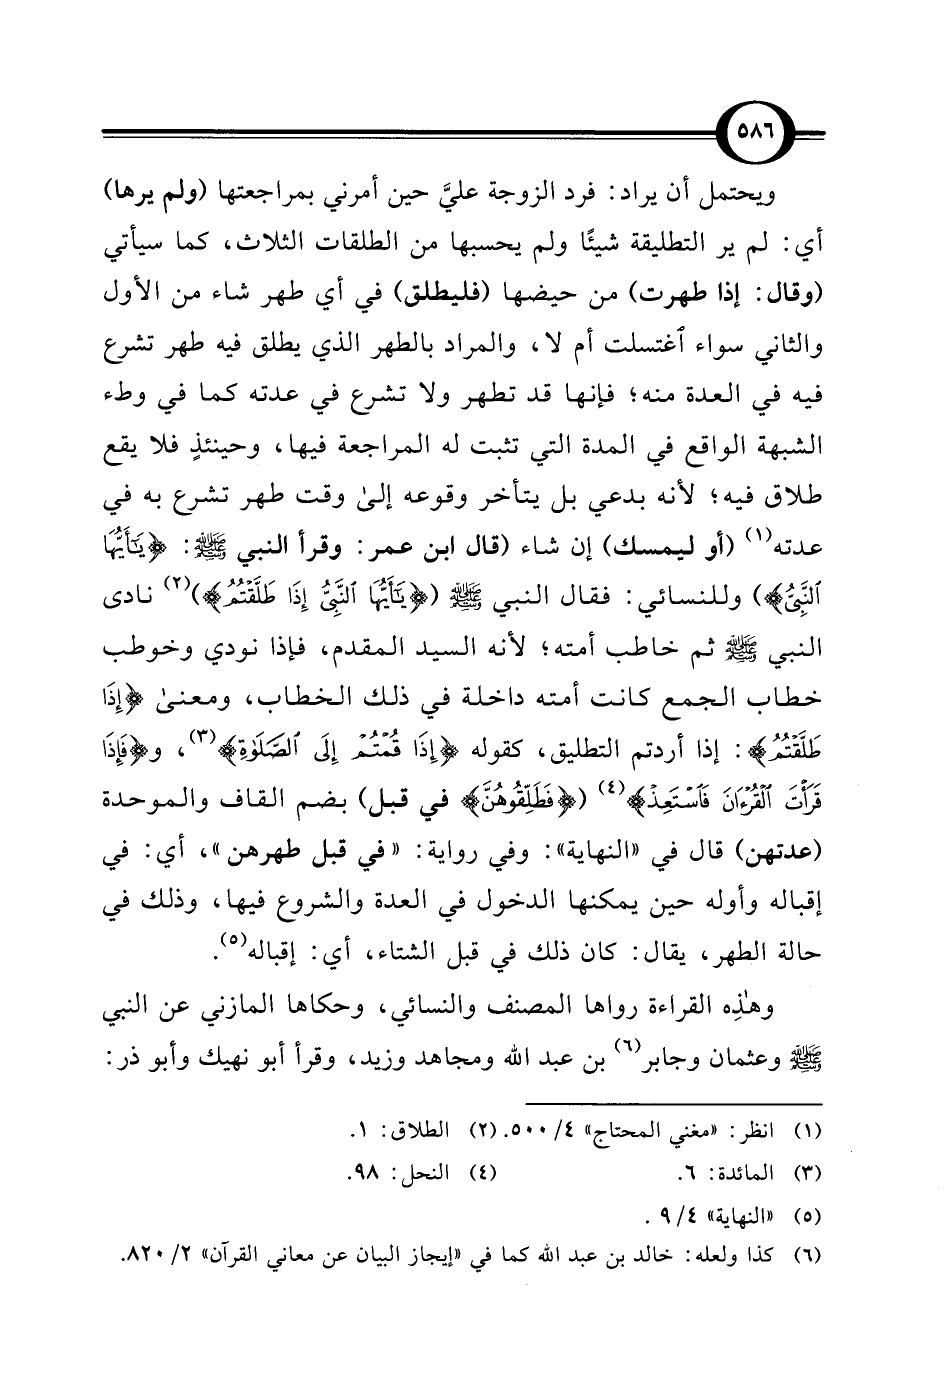 ٥٨٦
ويحتمل أن يراد: فرد الزوجة عليَّ حين أمرني بمراجعتها (ولم يرها)
أي: لم ير التطليقة شيئًا ولم يحسبها من الطلقات الثلاث، كما سيأتي
(وقال: إذا طهرت) من حيضها (فليطلق) في أي طهر شاء من الأول
والثاني سواء ٱغتسلت أم لا، والمراد بالطهر الذي يطلق فيه طهر تشرع
فيه في العدة منه؛ فإنها قد تطهر ولا تشرع في عدته كما في وطء
الشبهة الواقع في المدة التي تثبت له المراجعة فيها، وحينئذٍ فلا يقع
طلاق فيه؛ لأنه بدعي بل يتأخر وقوعه إلىٰ وقت طهر تشرع به في
عدته(١) (أو ليمسك) إن شاء (قال ابن عمر: وقرأ النبي ﷺ: ﴿يَٰٓأَيُّهَا
ٱلنَّبِيُّ﴾) وللنسائي: فقال النبي ﷺ (﴿يَٰٓأَيُّهَا ٱلنَّبِيُّ إِذَا طَلَّقْتُمُ﴾)(٢) نادى
النبي ﷺ ثم خاطب أمته؛ لأنه السيد المقدم، فإذا نودي وخوطب
خطاب الجمع كانت أمته داخلة في ذلك الخطاب، ومعنىٰ ﴿إِذَا
طَلَّقْتُمُ﴾: إذا أردتم التطليق، كقوله ﴿إِذَا قُمْتُمْ إِلَى ٱلصَّلَوٰةِ﴾(٣)، و﴿فَإِذَا
قَرَأْتَ ٱلْقُرْءَانَ فَٱسْتَعِذْ﴾(٤) (﴿فَطَلِّقُوهُنَّ﴾ في قبل) بضم القاف والموحدة
(عدتهن) قال في «النهاية»: وفي رواية: «في قبل طهرهن»، أي: في
إقباله وأوله حين يمكنها الدخول في العدة والشروع فيها، وذلك في
حالة الطهر، يقال: كان ذلك في قبل الشتاء، أي: إقباله(٥).
وهٰذِه القراءة رواها المصنف والنسائي، وحكاها المازني عن النبي
ﷺ وعثمان وجابر(٦) بن عبد الله ومجاهد وزيد، وقرأ أبو نهيك وأبو ذر:
(١) انظر: «مغني المحتاج» ٤/ ٥٠٠. (٢) الطلاق: ١.
(٣) المائدة: ٦. (٤) النحل: ٩٨.
(٥) «النهاية» ٤/ ٩ .
(٦) كذا ولعله: خالد بن عبد الله كما في «إيجاز البيان عن معاني القرآن» ٢/ ٨٢٠.